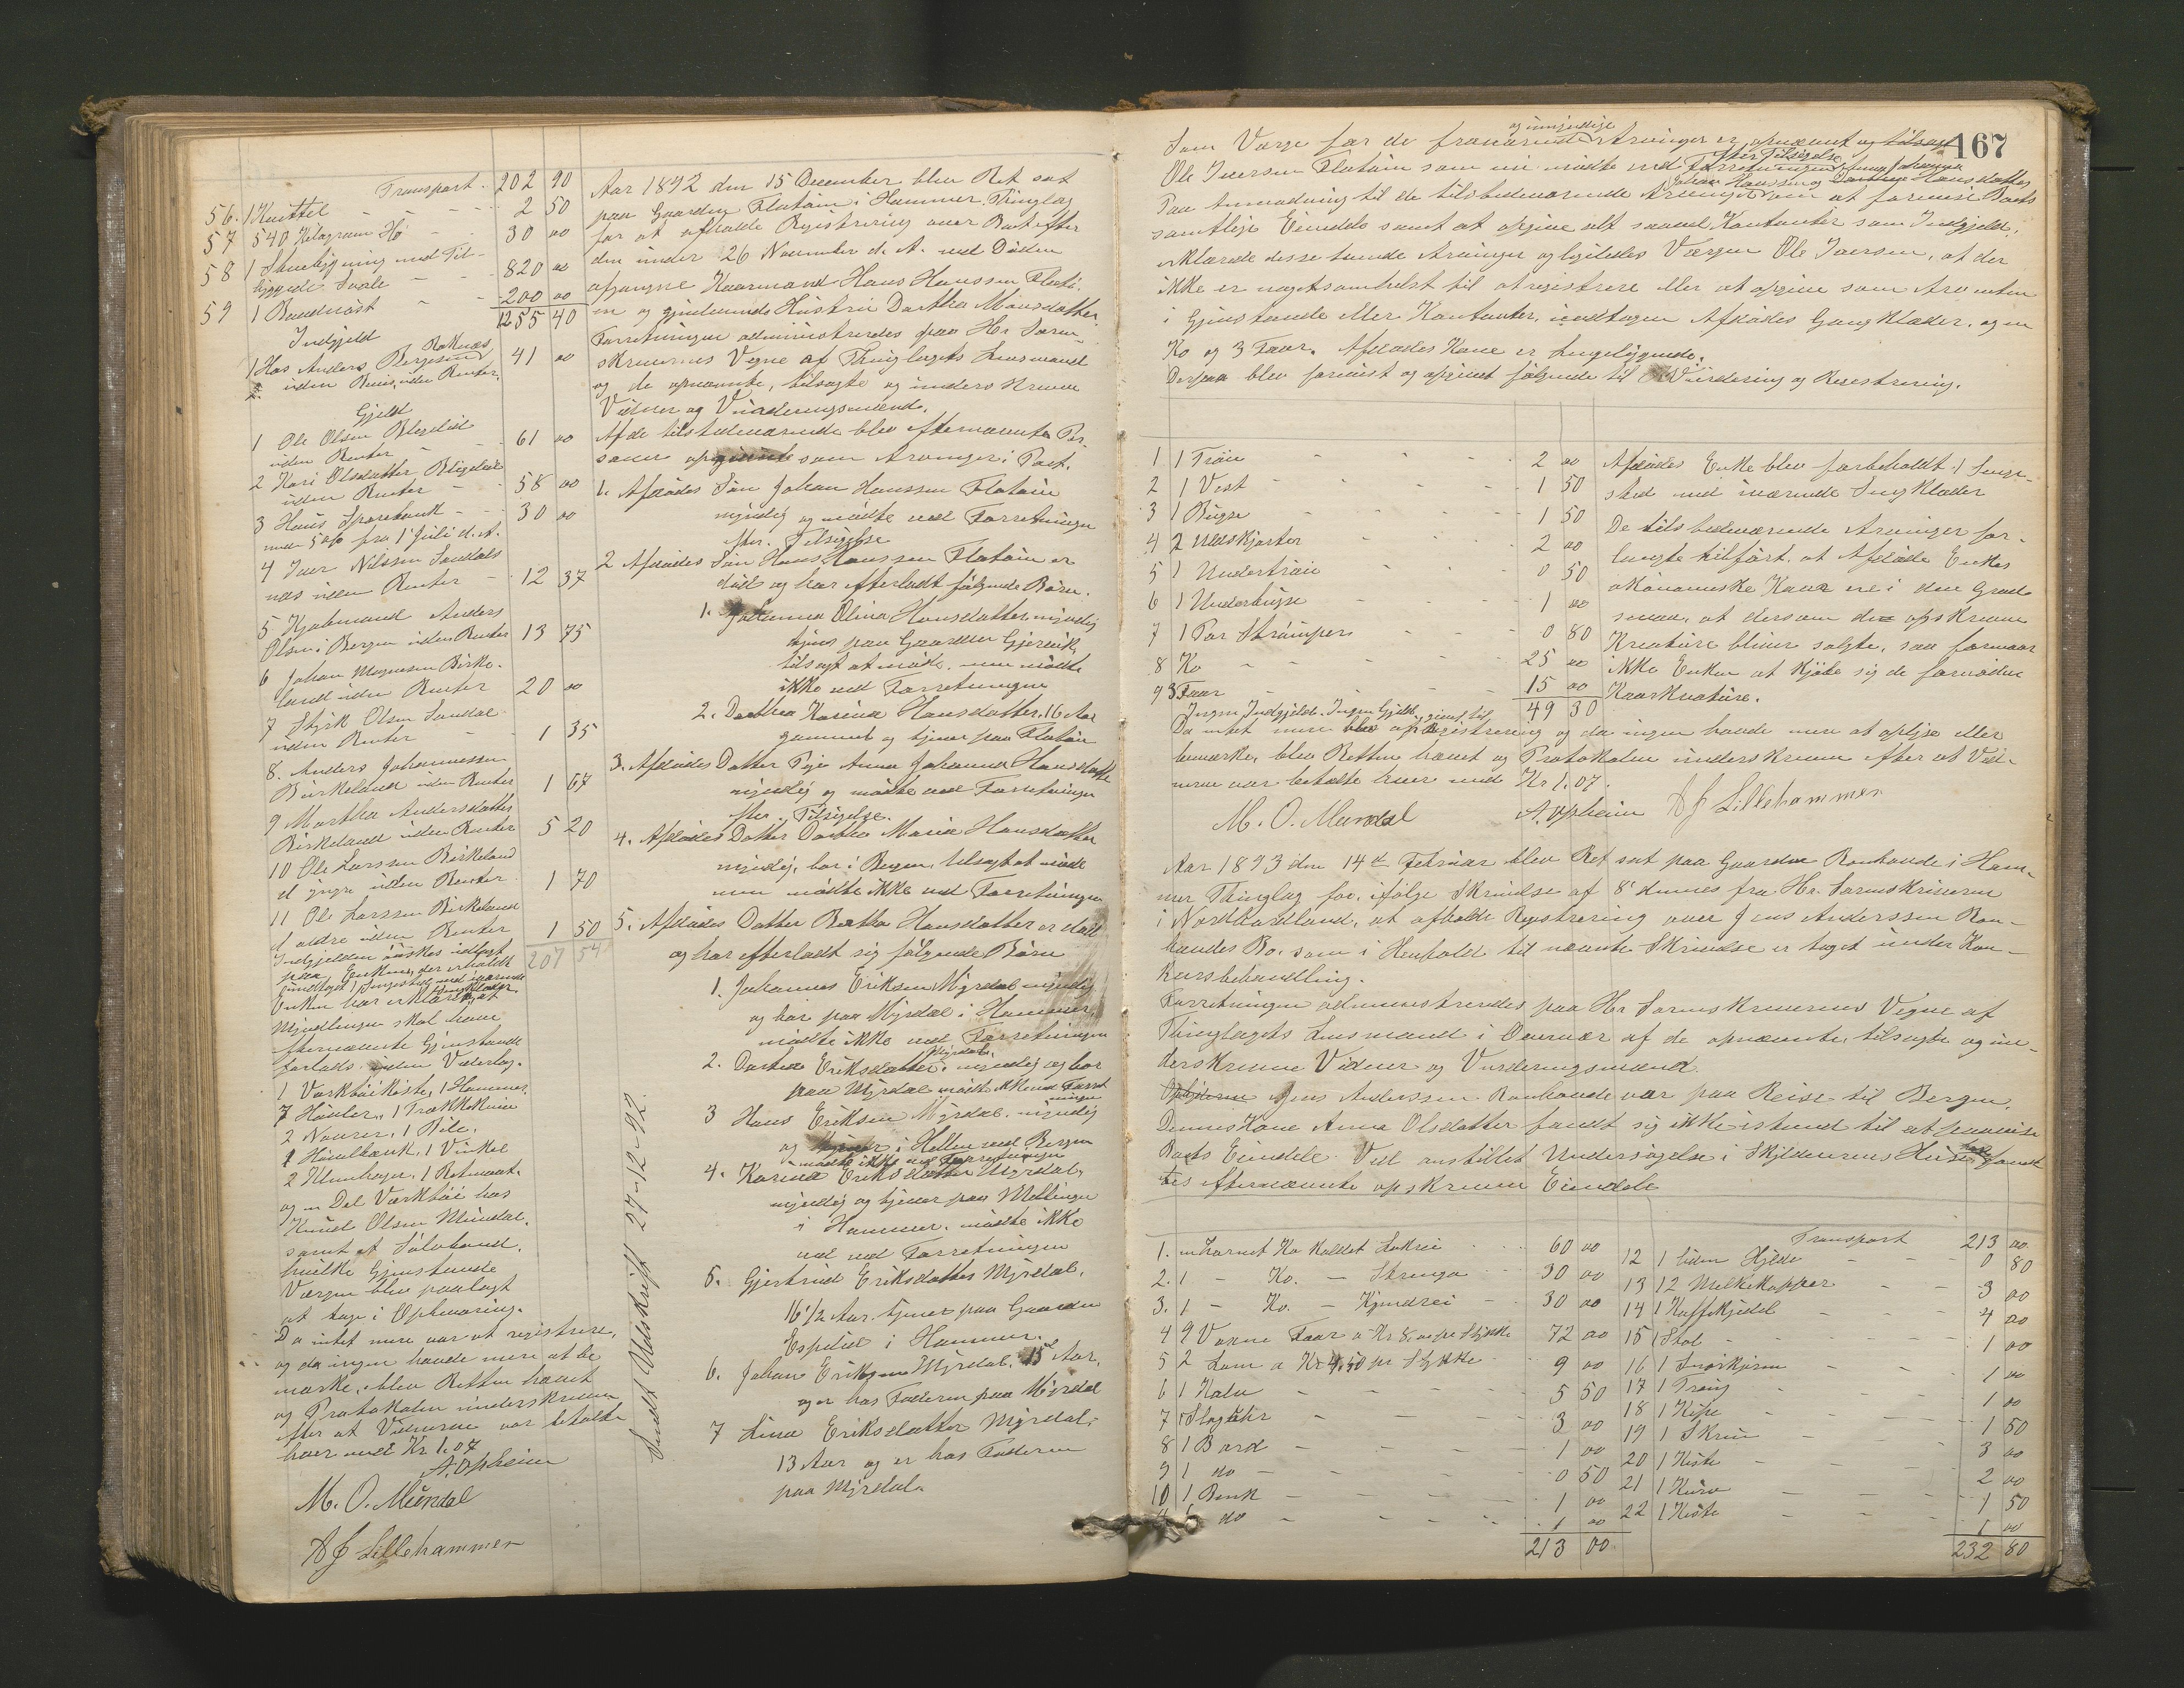 Transport. 202 90
56. 1 Knittel - - - 2 50
57 540 Kilogram Hø - 30 00
58 1 Stuebygning med Til-
liggende Svale - 820 00
59 1 Baadnøst - - 200 00
1255 40
Indgjeld
1 Hos Anders Børgesen Raknæs 41 00
uden Beviis, uden Renter.
Gjeld
1 Ole Olsen Blegelid
uden Renter - 61 00
2 Kari Olsdatter Bligelid
uden Renter - 58 00
3 Haus Sparebank - - 30 00
med 5 o/o fra 1 Juli d. A.
4 Iver Nilssen Sandals
næs uden Renter - 12 37
5 Kjøbmand Anders
Olsen i Bergen uden Renter 13 75
6 Johan Magnesen Birke-
land uden Renter 20 00
7 Styrk Olsen Sandal
uden Renter - 1 35
8. Anders Johannessen
Birkeland uden Renter 1 67
9 Martha Andersdatter
Birkeland uden Renter 5 20
10 Ole Larssen Birkeland
d yngre uden Renter 1 70
11 Ole Larssen Birkeland
d ældre uden Renter 1 50
207 54
Indgjelden ønskes udlagt
paa Enken, der erholdt
undtaget 1 Sengested med iværende
Sengklæder
Enken har erklæret, at
Myndlingen skal have
efternævnte Gjenstande
forlods uden Vederlag.
1 Værktøikiste, 1 Hammer.
7 Høvler, 1 Trækkekniv
2 Navrer, 1 Bile.
1 Høvelbænk, 1 Vinkel
2 Klemhager, 1 Retmaat.
og en Del Værktøi hos
Knud Olsen Mundal.
samt et Sølvbaand.
hvilke Gjenstande
Værgen blev paalagt
at tage i Opbevaring.
Da intet mere var at registrere,
og da ingen havde mere at be
mærke, blev Retten hævet
og Protokolen underskreven
efter at Vidnerne var betalte
hver med Kr 1.07
A. Opheim
M. O. Mundal
A J Lillehammer
Aar 1892 den 15 December blev Ret sat
paa Gaarden Flatøen i Hammer Thinglag
for at afholde Registrering over Boet efter
den under 26 November d. A. ved Døden
afgangne Kaarmand Hans Hanssen Flatø-
en og gjenlevende Hustru Dorthea Monsdatter.
Forretningen administreredes paa Hr Soren-
skriverens Vegne af Thinglagets Lensmand
og de opnævnte, tilsagte og underskrevne
Vidner og Vurderingsmænd.
Af de tilstedeværende blev efternævnte Per-
soner opgivne som Arvinger i Boet.
1. Afdødes Søn Johan Hanssen Flatøen
myndig og mødte ved Forretningen
efter Tilsigelse
2 Afdødes Søn Hans Hanssen Flatøen er
død og har efterladt følgende Børn.
1. Johanna Olina Hansdatter myndig
tjener paa Gaarden Gjervik,
tilsagt at møde, men mødte
ikke ved Forretningen
2. Dorthea Karina Hansdatter, 16 Aar
gammel og tjener paa Flatøen
3. Afdødes Datter Pige Anna Johanna Hansdatter
myndig og mødte ved Forretningen
efter Tilsigelse.
4. Afdødes Datter Dorthea Maria Hansdatter
myndig, bor i Bergen, tilsagt at møde
men mødte ikke ved Forretningen
5. Afdødes Datter Bertha Hansdatter er død
og har efterladt sig følgende Børn
1. Johannes Eriksen Myrdal myndig
og bor paa Myrdal i Hammer,
mødte ikke ved Forretningen
2. Dorthea Eriksdatter Myrdal, myndig og bor
paa Myrdal mødte ikke ved Forret
ningen
3 Hans Eriksen Myrdal, myndig
og tjener i Hellen ved Bergen
mødte ikke ved Forretningen
4. Karina Eriksdatter Myrdal,
myndig og tjener paa Mellingen
i Hammer, mødte ikke
ved Forretningen
5. Gjertrud Eriksdatter Myrdal,
16 1/2 Aar. tjener paa Gaarden
Espelid i Hammer.
6. Johan Eriksen Myrdal, 15 Aar,
og er hos Faderen paa Myrdal
7 Lina Eriksdatter Myrdal,
13 Aar og er hos Faderen
paa Myrdal.
Sendt Udskrift 27-12-92.
167
Som Værge for de fraværende og umyndige Arvinger er opnævnt og tilsagt
Ole Iversen Flatøen som nu mødte ved Forretningen efter Tilsigelse
Paa Anmodning til de tilstedeværende Arvinger Johan Hanssen og Anna Johanna Hansdatter om at forevise Boets
samtlige Eiendele samt at opgive alt saavel Kontanter som Indgjeld,
erklærede desse tvende Arvinger og ligeledes Værgen Ole Iversen, at der
ikke er nogetsomhelst til at registrere eller at opgive som Arvemidler
i Gjenstande eller Kontanter, undtagen Afdødes Gangklæder, og en
Ko og 3 Faar. Afdødes Kone er sengeliggende.
Derpaa blev forevist og opgivet følgende til Vurdering og Registrering.
1 1 Trøie - - - 2 00
2 1 Vest - - - 1 50
3 1 Buxe - - - 1 50
4 2 Uldskjorter - - 2 00
5 1 Undertrøie - - 0 50
6 1 Underbuxe - - 1 00
7 1 Par Strømper - - 0 80
8 Ko - - - 25 00
9 3 Faar - - - 15 00
49 30
Afdødes Enke blev forbeholdt 1 Senge-
sted med iværende Sengklæder
De tilstedeværende Arvinger for-
langte tilført, at Afdøde Enkes
økonomiske Kaar ere i den Grad
smaa, at dersom de opskrevne
Kreature bliver solgte, saa formaar
ikke Enken at kjøbe sig de fornødne
Kaarkreature.
Ingen Indgjeld. Ingen Gjeld
Da intet mere blev opgivet til Registrering og da ingen havde mere at oplyse eller
bemærke, blev Retten hævet og Protokolen underskreven efter at Vid-
nerne var betalte hver med Kr 1.07.
M. O. Mundal A. Opheim A J Lillehammer
Aar 1893 den 14de Februar blev Ret sat paa Gaarden Ronhovde i Ham-
mer Thinglag for, ifølge Skrivelse af 8' dennes fra Hr. Sorenskriveren
i Nordhordland, at afholde Registrering over Jens Anderssen Ron-
hovdes Bo. som i Henhold til nævnte Skrivelse er taget under Kon-
kursbehandling.
Forretningen administreredes paa Hr Sorenskriverens Vegne af
Thinglagets Lensmand i Overvær af de opnævnte, tilsagte og un-
derskrevne Vidner og Vurderingsmænd
Jens Anderssen Ronhovde var paa Reise til Bergen.
Dennes Kone Anna Olsdatter fandt sig ikke istand til at forevise
Boets Eiendele. Ved anstillet Undersøgelse i Skyldnerens Huse fandt
tes efternævnte opskrevne Eiendele
1. en hornet Ko kaldet Lokrei - 60 00
2. 1 - Ko. - Strenga - 30 00
3. 1 - Ko. - Kjendrei - 30 00
4 9 Voxne Faar a Kr 8,00 pr Stykke 72 00
5 2 Lam a Kr 4,50 pr Stykke 9 00
6 1 Kalv - - - 5 50
7 1 - - - 3 00
8 1 Bord - - - 1 00
9 1 do - - - 0 50
10 1 Benk - - - 1 00
1 do - - - 1 00
213 00
Transport 213 00
12 1 liden Hylde - - 0 80
13 12 Melkekopper - - 3 00
14 1 Kaffekjedel - - 4 00
15 1 Stol - - - 1 00
16 1 - - 1 00
17 1 - - - 1 00
18 1 Kipe - - - 1 50
19 1 Skrin - - - 3 00
20 1 Kiste - - - 2 00
21 1 Kurv - - - 1 50
22 1 Kiste - - - 1 00
232 80